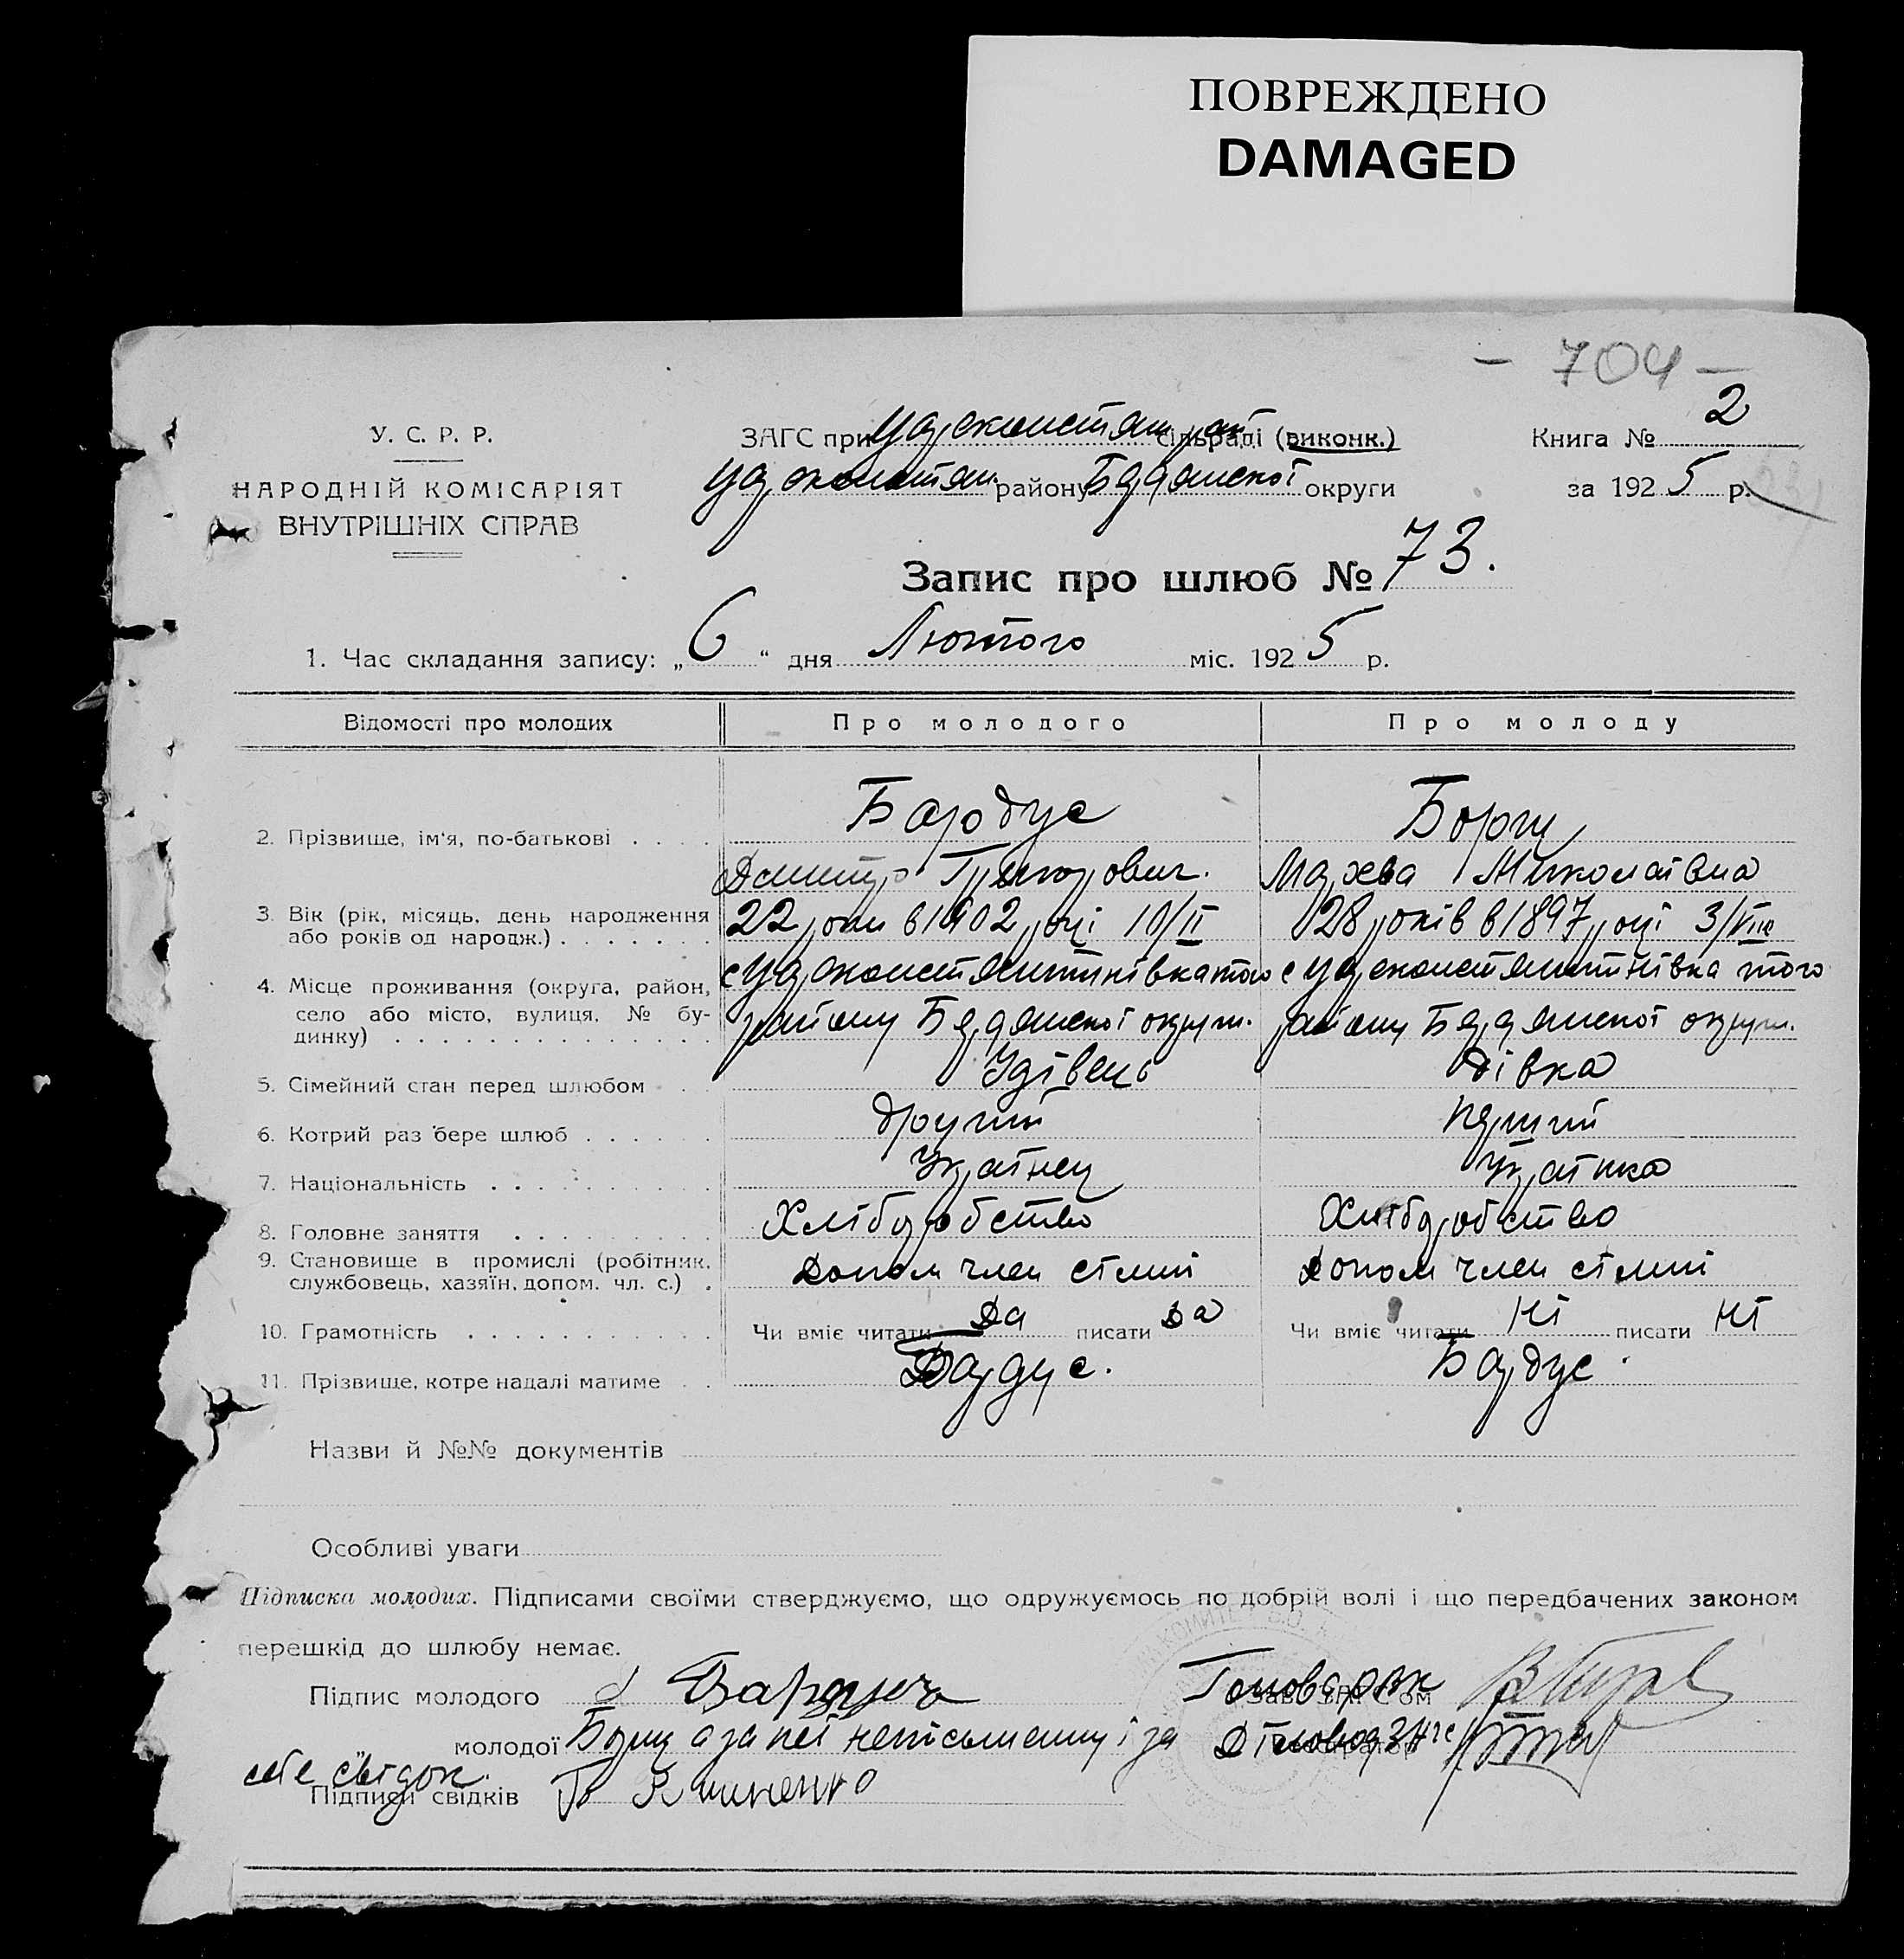 ПОВРЕЖДЕНО
DAMAGED
- 704 -
У. С. Р. Р.
НАРОДНІЙ КОМІСАРІЯТ
ВНУТРІШНІХ СПРАВ
ЗАГС при Цареконстан рай сільраді (виконк.)
Цареконстан. району Бердянської округи
Книга № 2
за 1925 р.
Запис про шлюб № 73.
1. Час складання запису: „6“ дня Лютого міс. 1925 р.
Відомості про молодих Про молодого Про молоду
2. Прізвище, ім'я, по-батькові . . . . Бардус Борщ
Дмитро Григорович. Мархва Миколаівна
3. Вік (рік, місяць, день народження або років од народж.) . . . . . . . 22 роки в 1902 році 10/II 28 років в 1897 році 3/VIII
4. Місце проживання (округа, район, село або місто, вулиця, № будинку) . . . с Цареконстянтинівка того району Бердянської округи. с Цареконстянтинівка того району Бердянської округи.
5. Сімейний стан перед шлюбом . . Удівець дівка
6. Котрий раз бере шлюб . . . . . . другий перший
7. Національність . . . . . . . . . Українец Українка
8. Головне заняття . . . . . . . . Хліборобство Хліборобство
9. Становище в промислі (робітник, службовець, хазяїн, допом. чл. с.) . Допом член сімиі Допом член сімиі
10. Грамотність . . . . . . . . . . . Чи вміє читати Да писати Да Чи вміє читати Ні писати Ні
11. Прізвище, котре надалі матиме . . Бардус. Бардус.
Назви й №№ документів
Особливі уваги
Підписка молодих. Підписами своїми стверджуємо, що одружуємось по добрій волі і що передбачених законом
перешкід до шлюбу немає.
Підпис молодого Бардусь
молодої Борщ а за неі неписьменну і за
себе свідок.
Підписи свідків